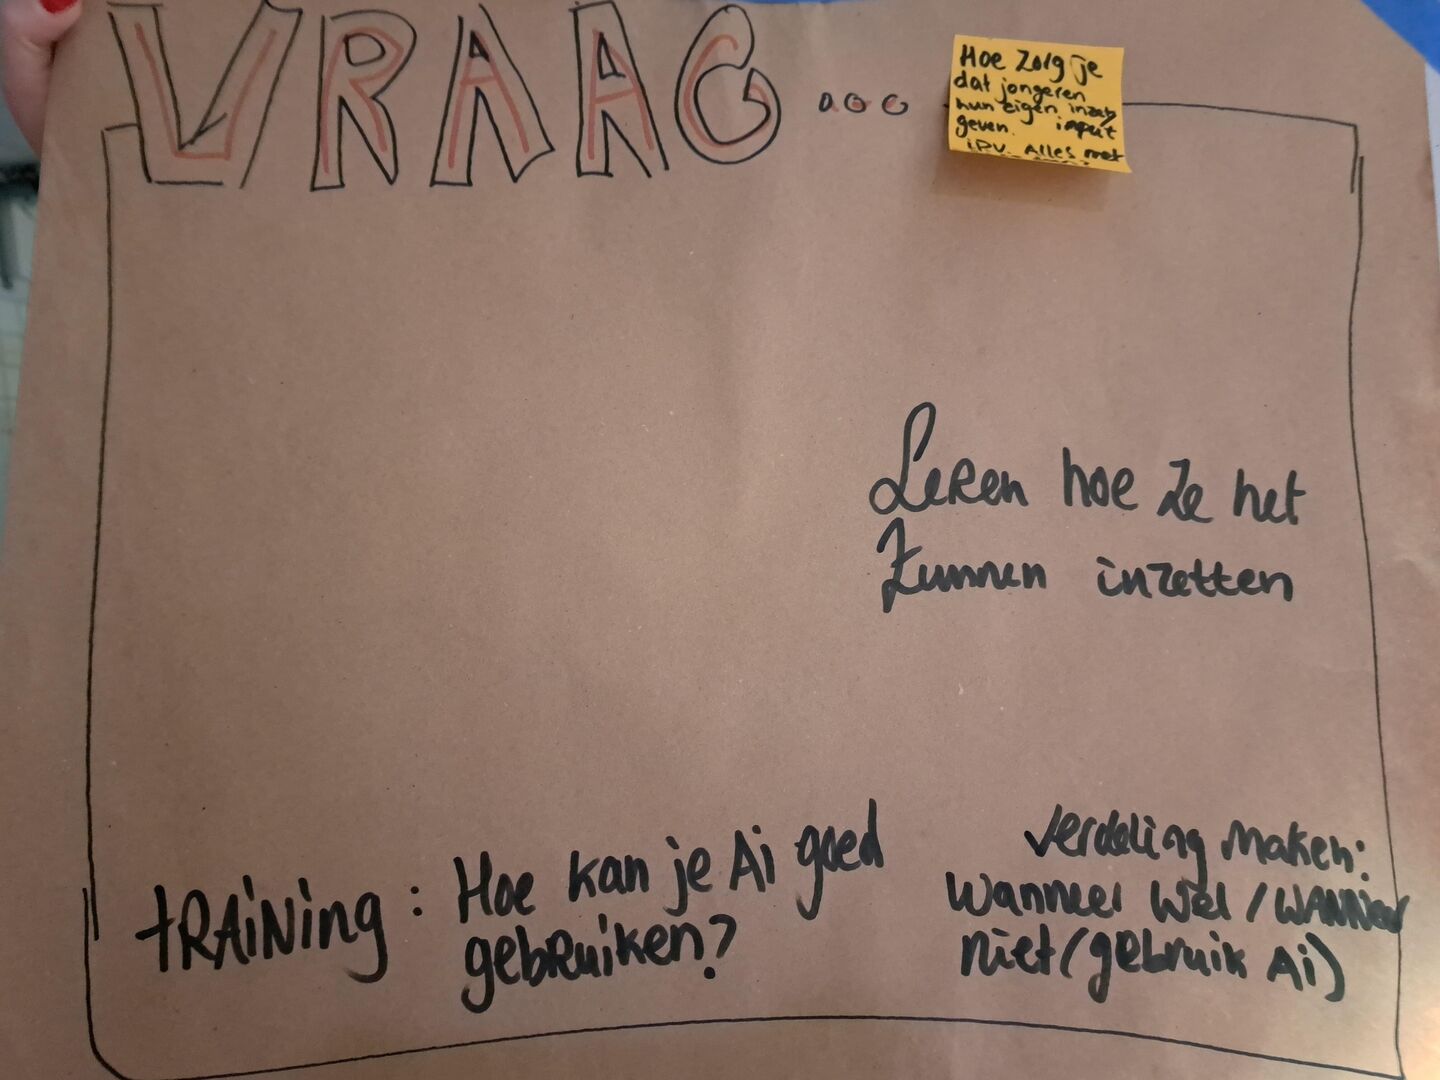 VRAAG...
Hoe zorg je
dat jongeren
hun eigen inzet/
geven. input
i.p.v. Alles met
Leren hoe ze het
kunnen inzetten
tRAiNing: Hoe kan je Ai goed
gebruiken?
Verdeling maken:
wanneer wel / wanneer
niet (gebruik Ai)